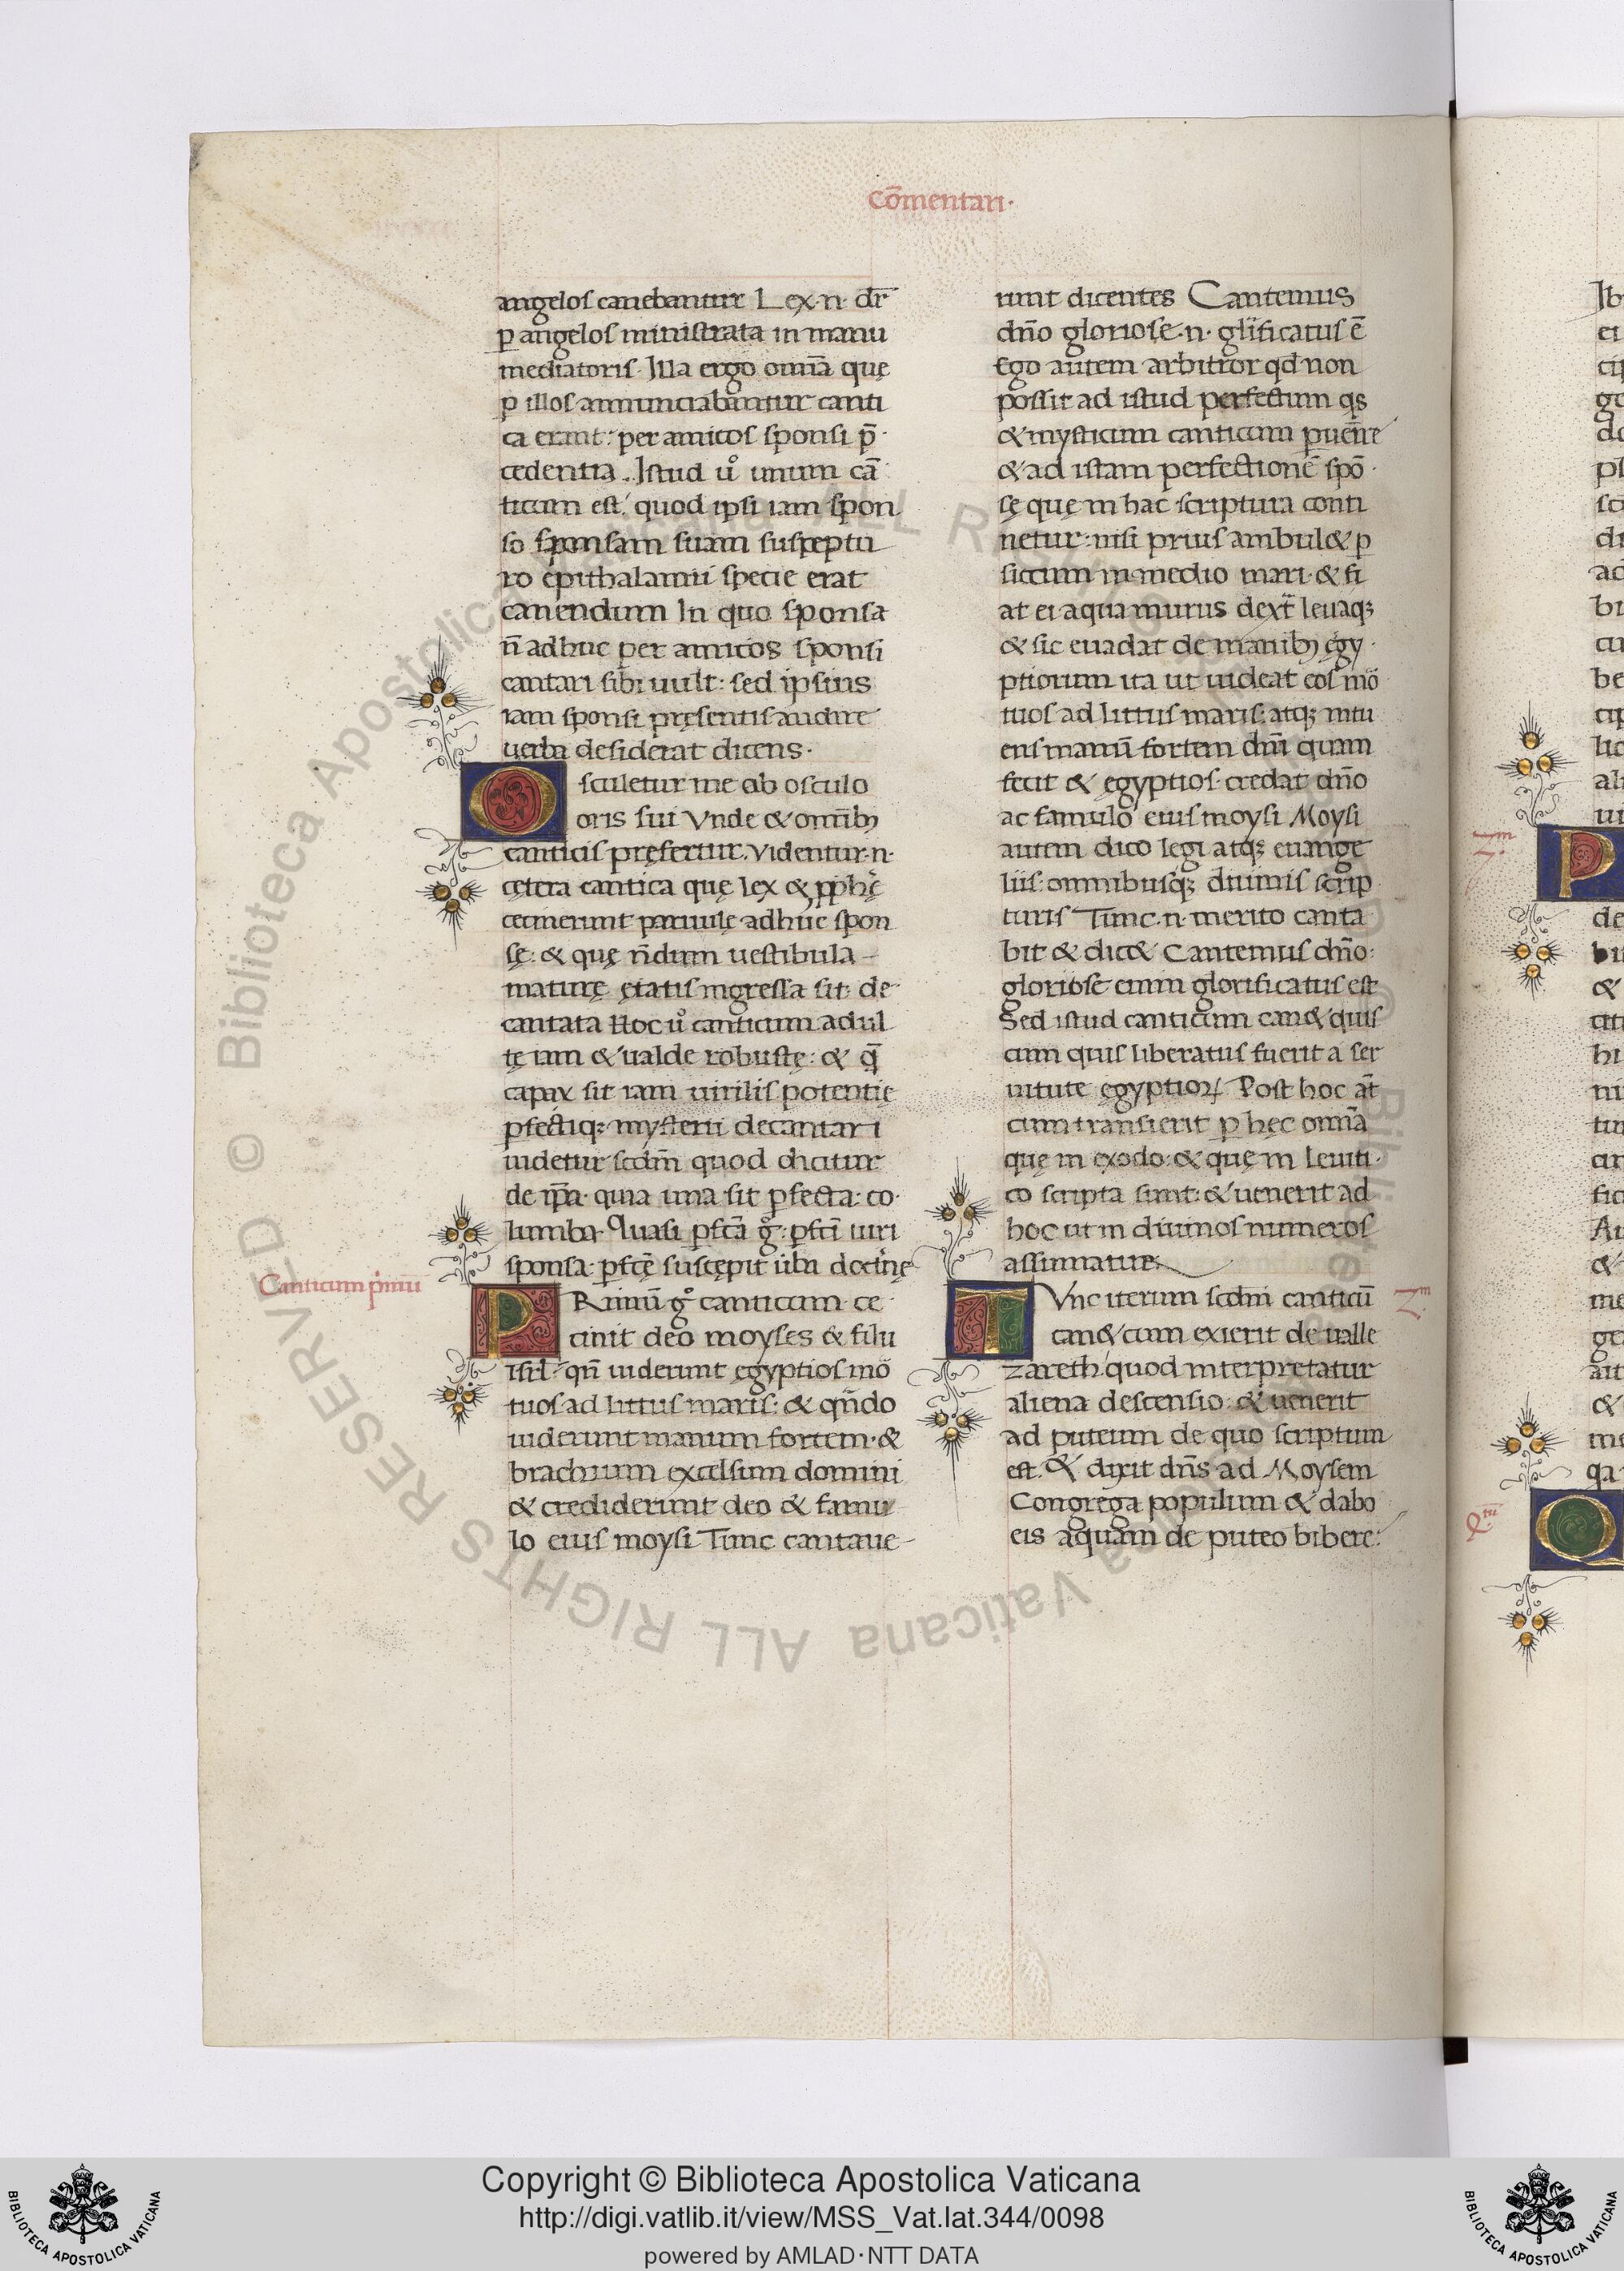 Cōmentari·
angelos canebantur Lex·n· dr̄
ꝑ angelos ministrata in manu
mediatoris· Illa ergo om̄ia quę
ꝑ illos annunciabantur canti
ca erant: per amicos sponsi p̄
cedentia. Istud u͛o unum cā
ticum est: quod ipsi iam spon
so sponsam suam susceptu
ro epithalamii specie erat
canendum In quo sponsa
n̄ adhuc per amicos sponsi
cantari sibi uult: sed ipsius
iam sponsi pręsentis audire
uerba desiderat dicens·
Osculetur me ab osculo
oris sui Vnde & omībꝫ
canticis pręfertur. Videntur·n·
cętera cantica quę lex & ꝓphę
cecinerunt paruulę adhuc spon
sę: & quę n̄dum uestibula
maturę ętatis ingressa sit de
cantata Hoc u͛o canticum adul
tę iam & ualde robustę: & q̄
capax sit iam uirilis potentię
ꝑfectiqꝫ mysterii decantari
uidetur scdm̄ quod dicitur
de ip̄a· quia una sit ꝑfecta· co
lumba· Quasi ꝑfcā g͛· ꝑfcī uiri
sponsa· ꝑfcę̄ suscępit ūba doctͥnę
Canticum pͥmū
PRimū g͛ canticum ce
cinit deo moyses & filii
isrl̄· qn̄ uiderunt egyptios mō
tuos ad littus maris: & qn̄do
uiderunt manum fortem &
brachium excelsum domini
& crediderunt deo & famu
lo eius moysi Tunc cantaue
runt dicentes Cantemus
dn̄o gloriose·n· gl̄ificatus ē
Ego autem arbitror qd non
possit ad istud perfectum qs
& mysticum canticum ꝑuen̄re
& ad istam perfectionē spō
sę quę in hac scriptura conti
netur: nisi prius ambul& ꝑ
siccum in medio mari· & fi
at ei aqua murus dext̄ leuaqꝫ
& sic euadat de manibꝫ ęgy
ptiorum ita ut uideat eos mō
tuos ad littus maris: atqꝫ intu
ens manū fortem dn̄i quam
fecit & ęgyptios· credat dn̄o
ac famulo eius moysi Moysi
autem dico legi atqꝫ euange
liis: omnibusqꝫ diuinis scrip
turis Tunc·n· merito canta
bit & dic& Cantemus dn̄o:
gloriose enim glorificatus est
Sed istud canticum can& quis
cum quis liberatus fuerit a ser
uitute ęgyptioꝝ Post hoc at̄
cum transierit ꝑ hęc om̄ia
quę in exodo & quę in leuiti
co scripta sunt: & uenerit ad
hoc ut in diuinos numeros
assumatur
TVnc iterum scdm̄ canticū
can& cum exierit de ualle
zareth quod interpretatur
aliena descensio: & uenerit
ad puteum de quo scriptum
est. & dixit dn̄s ad Moysem
Congrega populum & dabo
eis aquam de puteo bibere:
Copyright © Biblioteca Apostolica Vaticana
http://digi.vatlib.it/view/MSS_Vat.lat.344/0098
powered by AMLAD·NTT DATA
BIBLIOTECA APOSTOLICA VATICANA
BIBLIOTECA APOSTOLICA VATICANA
© Biblioteca Apostolica Vaticana ALL RIGHTS RESERVED